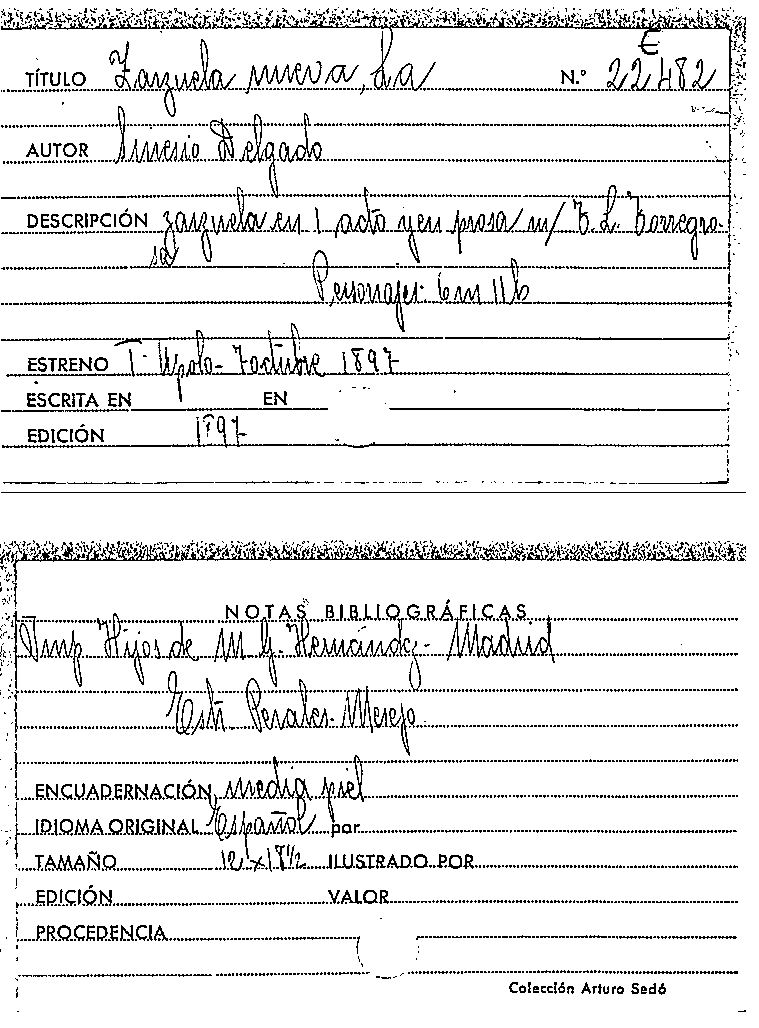 E
TÍTULO Zarzuela nueva, La N.º 22482
AUTOR Sinesio Delgado
DESCRIPCIÓN zarzuela en 1 acto y en prosa m/ T. L. Torregro-
sa
Personajes 6m 11h
ESTRENO T. Apolo - 7 octubre 1897
ESCRITA EN EN
EDICIÓN 1897
NOTAS BIBLIOGRÁFICAS
Imp Hijos de M. G. Hernández - Madrid
Estr. Perales - Mesejo
ENCUADERNACIÓN media piel
IDIOMA ORIGINAL Español por
TAMAÑO 12 x 18 1/2 ILUSTRADO POR
EDICIÓN VALOR
PROCEDENCIA
Colección Arturo Sedó